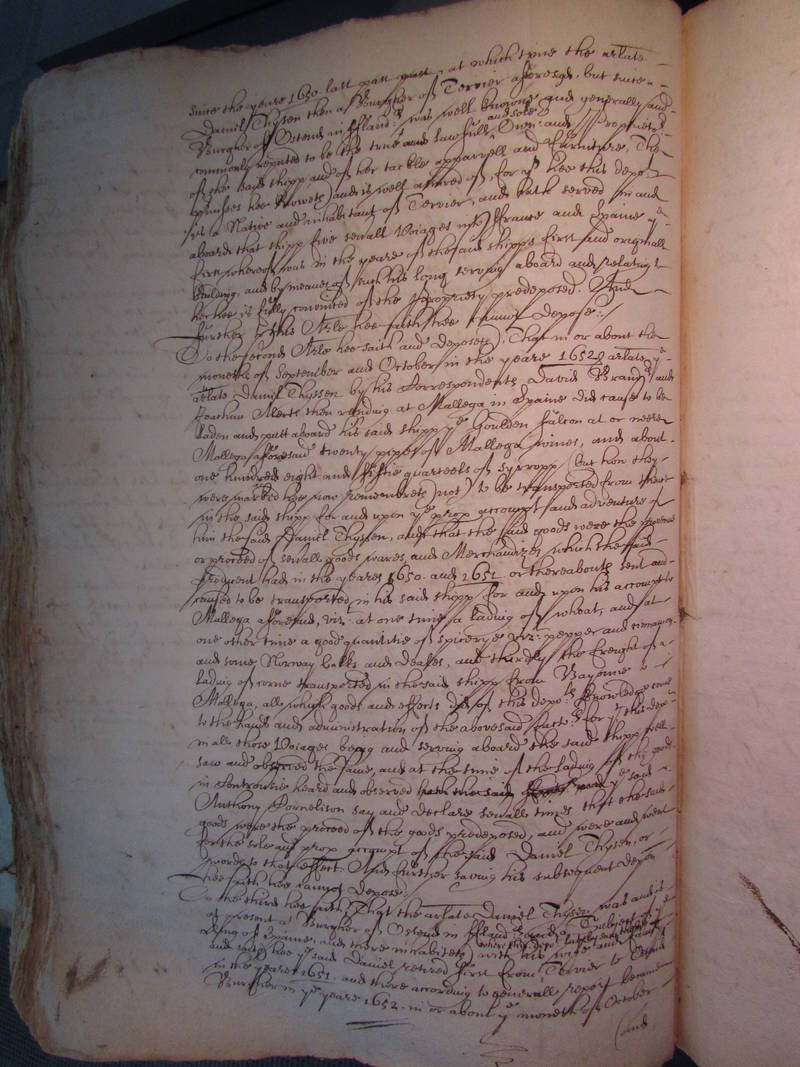 since the yeare 1650 last past, at which tyme the arlate
Daniel Thyssen then a Burgher of Tervier aforesaid, but since a
Burgher of Ostend in Fland:rs was well knowne and generally and
commonly reputed to be the true and lawfull and sole Owner and Proprietor
of the said shipp and of her tackle apparrell and furniture. The
premisses hee knoweth and is well assured of, for yt hee this depot
is a Native and inhabitant of Tervier, and hath served in and
aboard that shipp five severall Voiages in france and Spaine ye
first whereof was in the yeare of the said shipps first and originall
building, and by meanes of such his long serving aboard and relating to
her hee is fully convinced of the propriety predeposed. And
further to this Arle hee saith hee cannot depose:/
To the second Arle hee saith and deposeth, That in or about the
moneths of September and October in the yeare 1652 arlate ye
arlate Daniel Thyssen by his Correspondents David Brandt and
Joachim Alerts then residing at Mallega in Spaine did cause to be
laden and putt aboard his said shipp ye Goulden falcon at or neere
Mallega aforesaid twenty pipes of Mallega wines, and about
one hundred eight and fiftie quarteels of syrropp (but how they
were marked hee now remembreth not) to be transported from thence
in the said shipp for and upon ye prop accompt and adventure of
him the said Daniel Thyssen, and that the said goods were the
or proceed of severall goods wares and Merchandizes which the said
producent had in the yeares 1650. and 1651 or thereabouts sent and
caused to be transported in his said shipp for and upon his accompt to
Mallega aforesaid, viz: at one time a lading of wheat, and at
one other time a good quantitie of spicerye viz: pepper and
and some Norway balks and deales, and thirdly the freight of a
lading of corne transported in the said shipp from Bayonne to
Mallega, all which goods and effects did of this depots knowledge come
to the hands and administration of the abovesaid for yt this depot
in all those Voiages being and serving aboard the said shipp well
saw and observed the same, and at the time of the lading of the goods
in controversie heard and observed ye said
Anthony Cornelison say and declare severall times, that the said
goods were the proceed of the goods predeposed, and were and went
for the sole and prop accompt of the said Daniel Thyssen, or
words to that effect. And further saving his subsequent deposn
hee saith hee cannot depose.
To the third hee saith, That the arlate Daniel Thyssen was and is
at present a Burgher of Ostend in Fland:rs and a Subject of ye
King of Spaine, and there inhabiteth with his wife and family
and saith hee ye said Daniel retired first from Tervier to Ostend
in the yeare 1651. and there according to generall report became
Burgher in ye yeare 1652. in or about ye moneth of October
(and